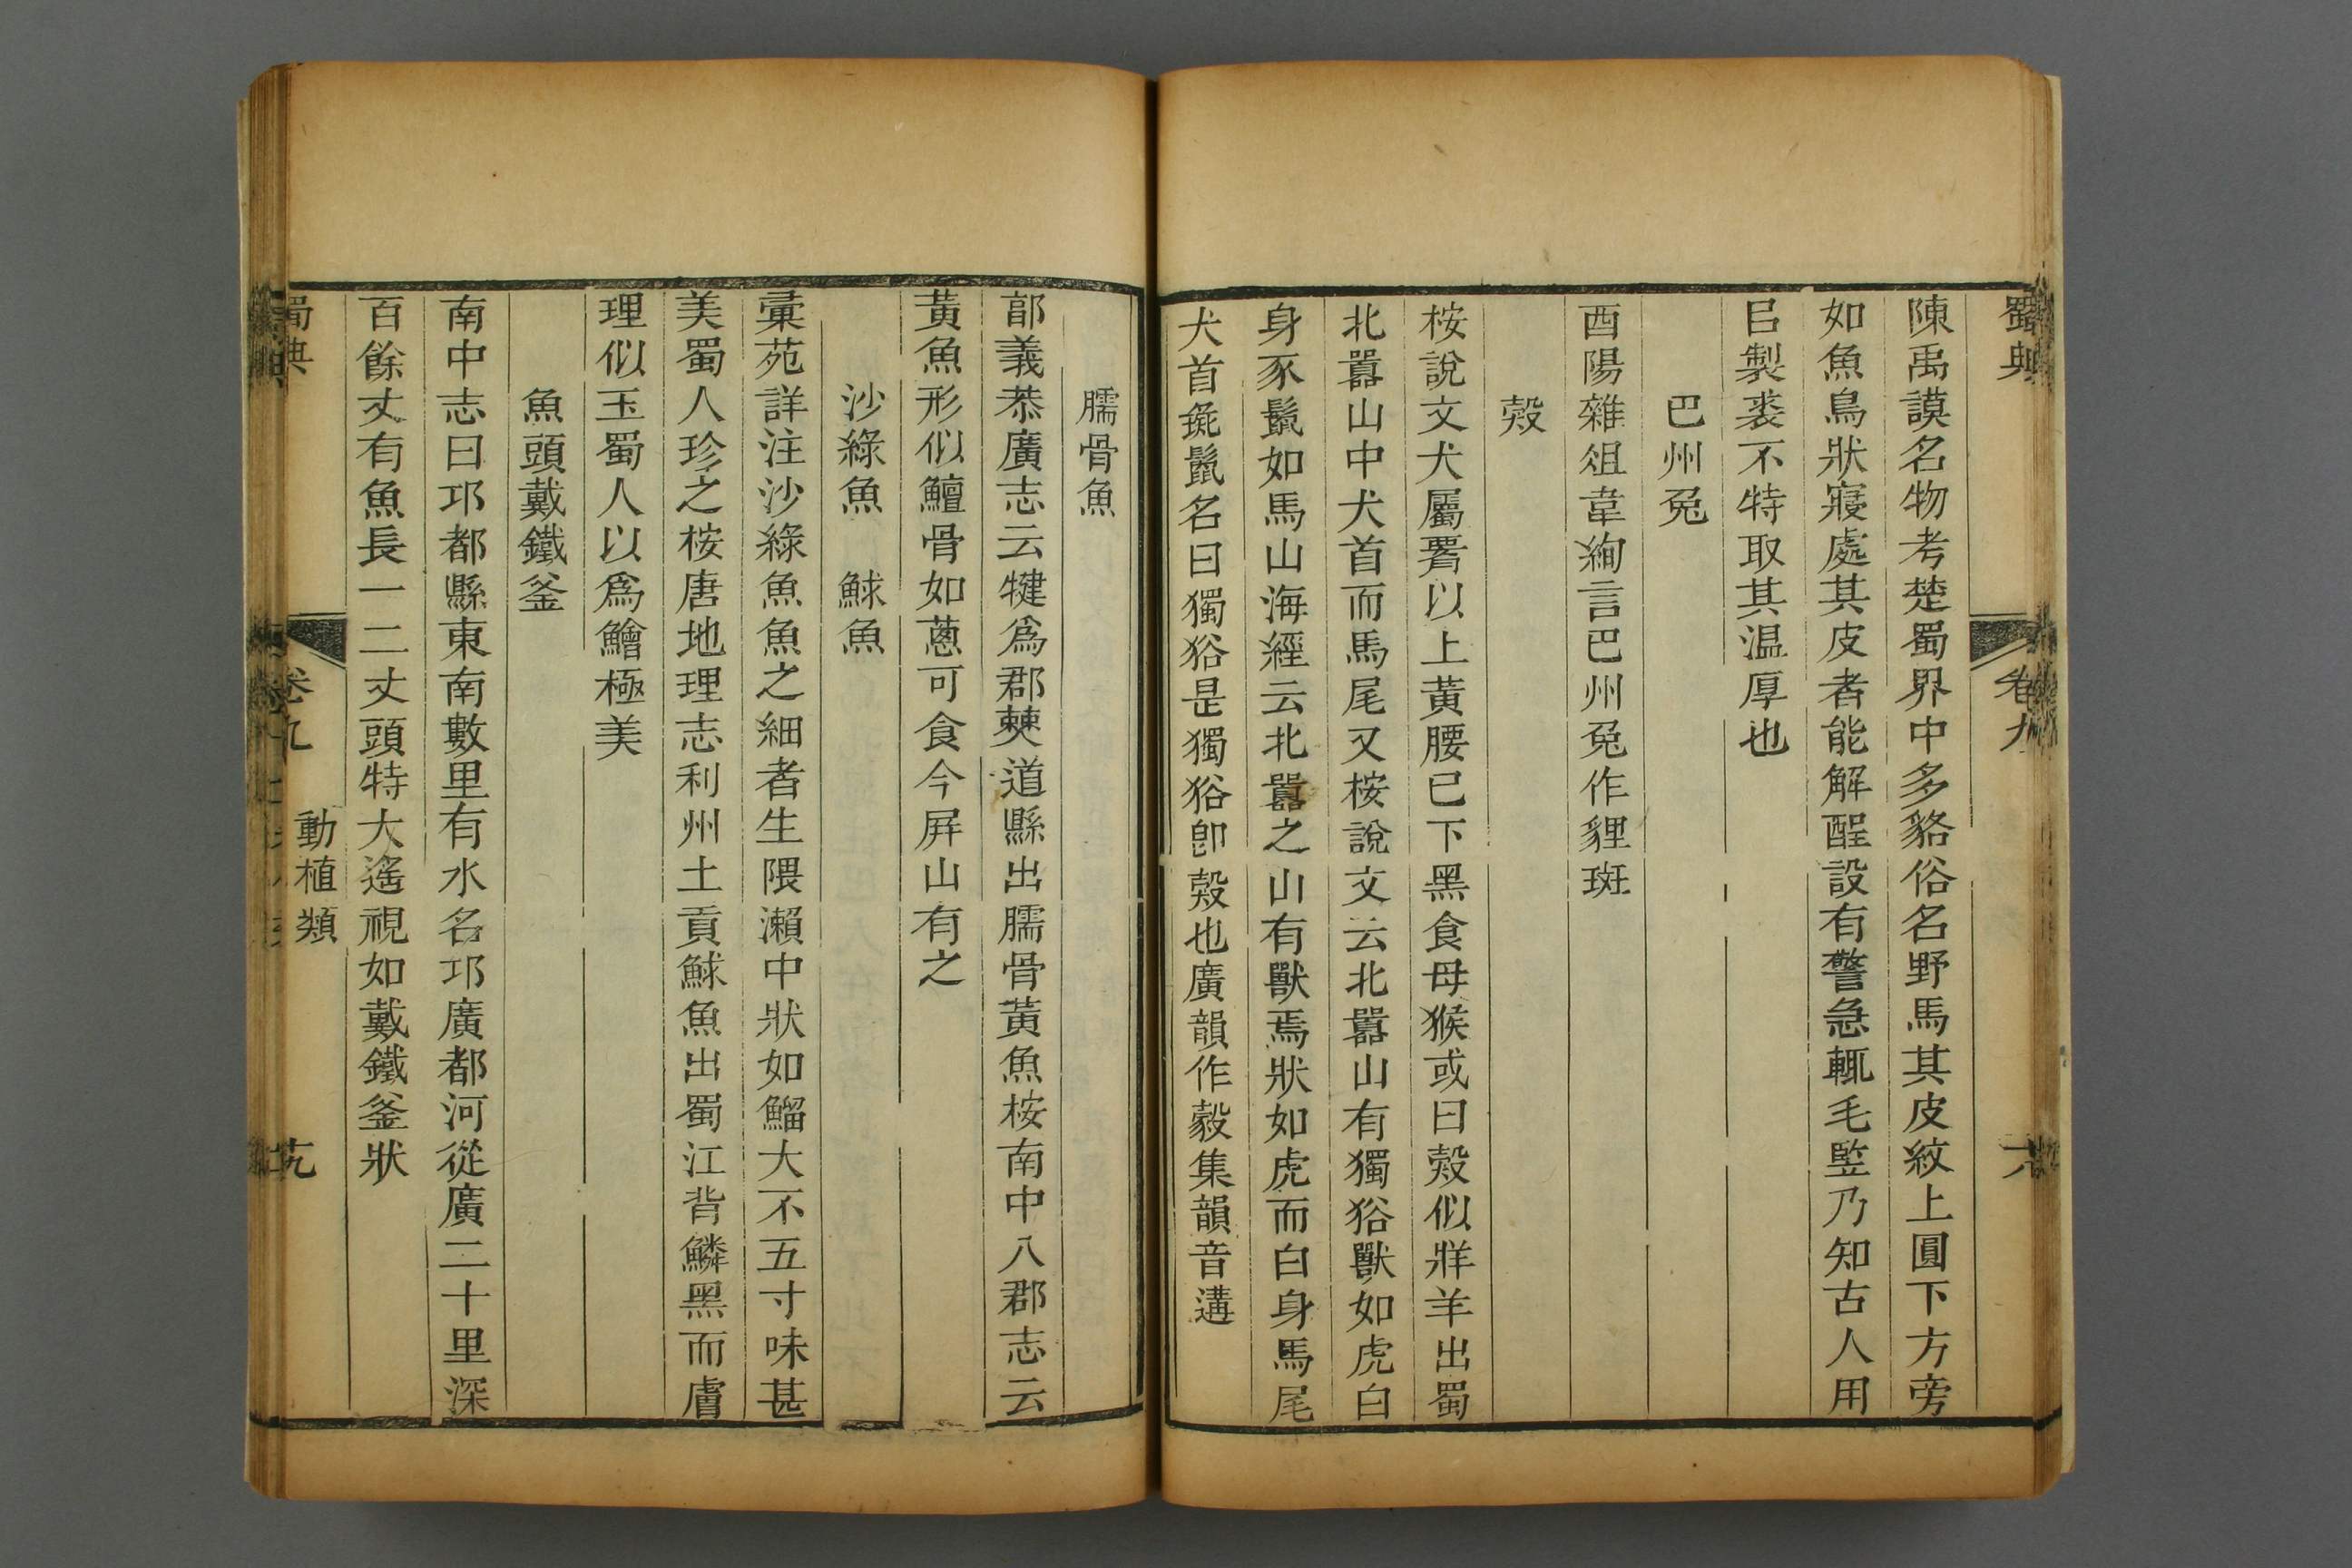 蜀典 卷九
陳禹謨名物考楚蜀界中多貉俗名野馬其皮紋上圓下方旁
如魚鳥狀寢處其皮者能解酲設有警急輒毛竪乃知古人用
㠯製裘不特取其温厚也
巴州兔
酉陽雜俎韋絢言巴州兔作貍斑
㺉
桉說文犬屬𦝫以上黃腰已下黑食母猴或曰㺉似牂羊出蜀
北嚻山中犬首而馬尾又桉說文云北嚻山有獨𤞞獸如虎白
身豕鬛如馬山海經云北嚻之山有獸焉狀如虎而白身馬尾
犬首彘鬛名曰獨𤞞是獨𤞞卽㺉也廣韻作㺉集韻音遘
臑骨魚
郭義恭廣志云犍爲郡僰道縣出臑骨黃魚桉南中八郡志云
黃魚形似鱣骨如蔥可食今屛山有之
沙綠魚 鮛魚
彙苑詳注沙綠魚魚之細者生隈瀨中狀如鰡大不五寸味甚
美蜀人珍之桉唐地理志利州土貢鮛魚出蜀江背鱗黑而膚
理似玉蜀人以爲鱠極美
魚頭戴鐵釜
南中志曰邛都縣東南數里有水名邛廣都河從廣二十里深
百餘丈有魚長一二丈頭特大遙視如戴鐵釜狀
蜀典 卷九 動植類